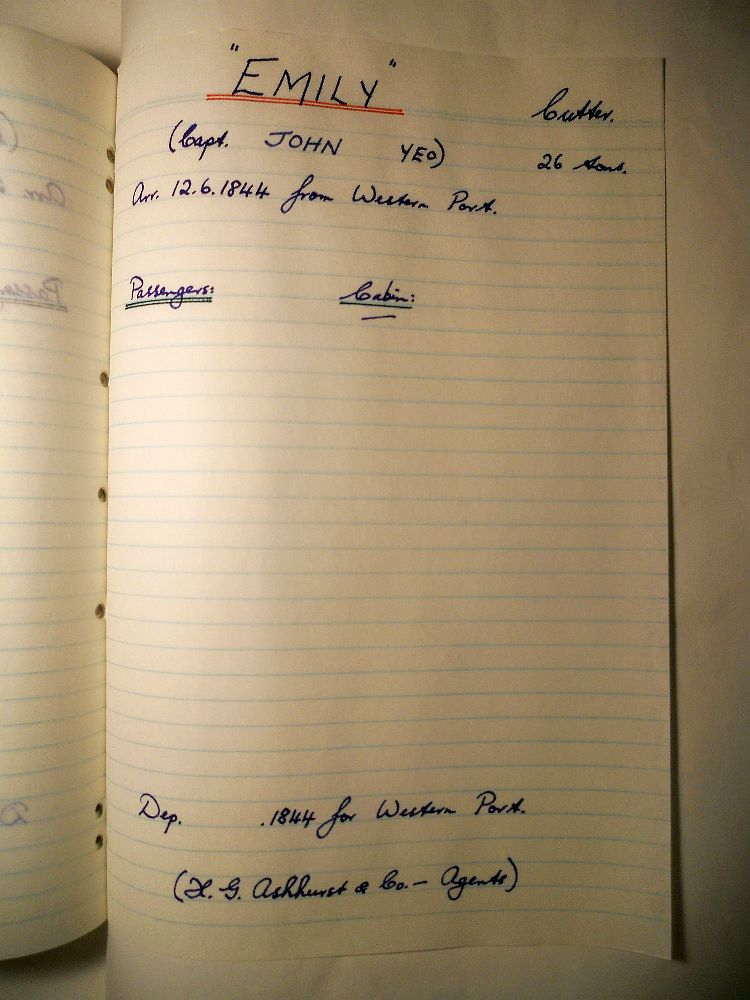 "EMILY"
Cutter.
(Capt. JOHN YEO)
26 tons.
Arr. 12.6.1844 from Western Port.
Passengers:
Cabin:
—
Dep. .1844 for Western Port.
(H. G. Ashhurst & Co. — Agents)